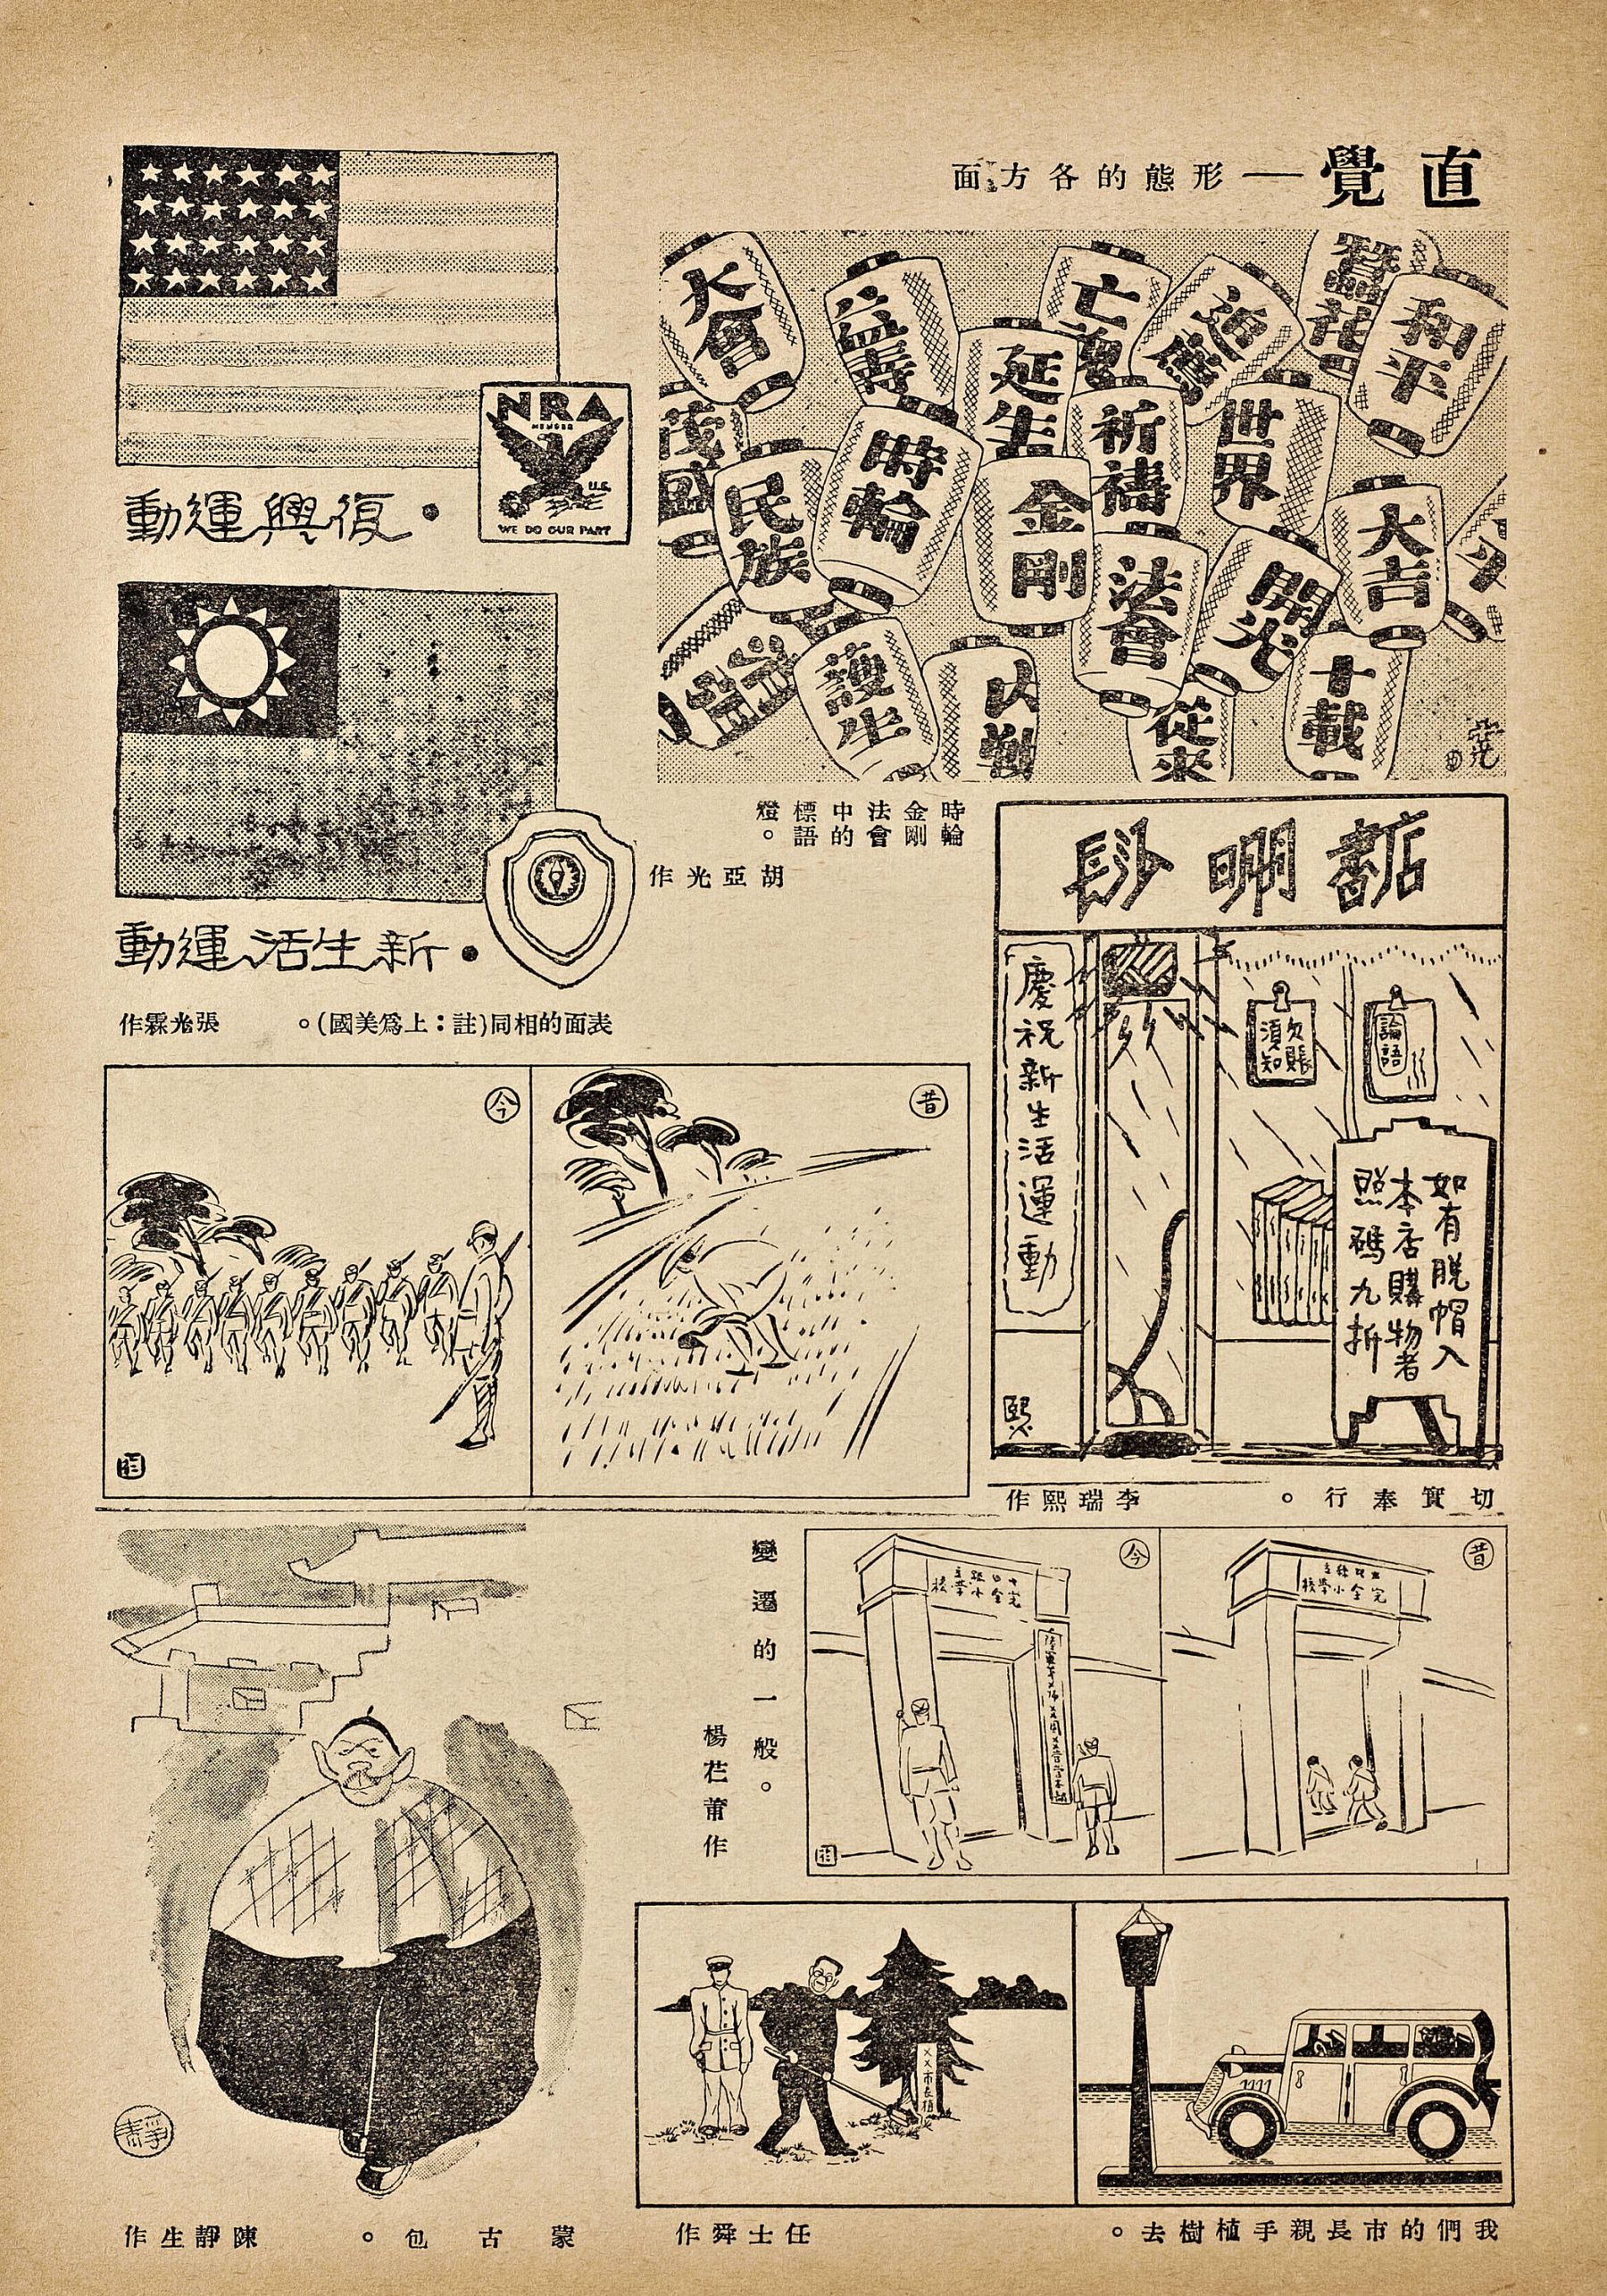 直覺——形態的各方面
大會
益壽
亡魂
和平
延生
祈禱
世界
茂盛
民族
時輪
金剛
大吉
法會
開光
護生
十載
從來
時輪
金剛
法會
中的
標語
燈。
胡亞光作
NRA
MEMBER
U.S.
WE DO OUR PART
復興運動
新生活運動
表面的相同(註:上爲美國)。
張光霖作
慶祝新生活運動
欠賬
須知
論語
如有脫帽入
本店購物者
照碼九折
熙
切實奉行。
李瑞熙作
昔
今
昔
完全小學校
今
完全小學校
變遷的一般。
楊芢莆作
××市長植
我們的市長親手植樹去。
任士舜作
蒙古包。
陳靜生作